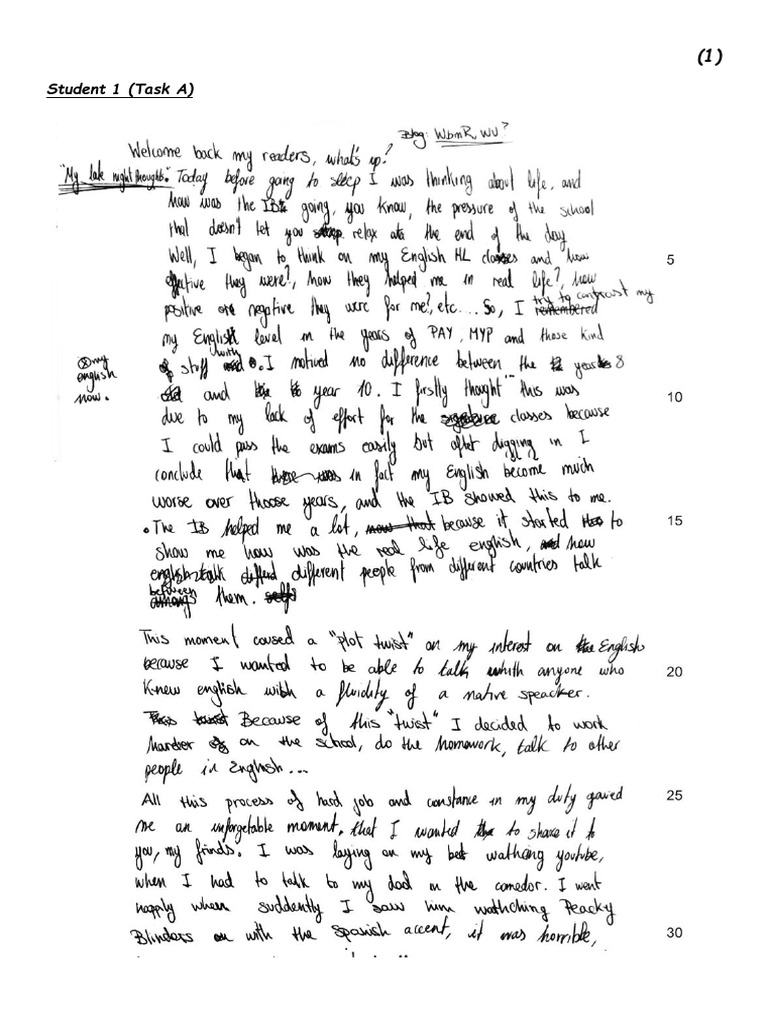 (1)
Student 1 (Task A)
Blog: WbmR, WU?
Welcome back my readers, what's up?
"My late night thoughts." Today before going to sleep I was thinking about life, and
how was the IB going, you know, the pressure of the school
that doesn't let you relax at the end of the day
Well, I began to think on my English HL classes and how 5
effective they were?, how they helped me in real life?, how
positive or negative they were for me?, etc.... So, I try to contrast my
remembered
my English level in the years of PAY, MYP and those kind
of stuff with ⊗. I noticed no difference between the year 8
⊗ my
english
now.
and year 10. I firstly thought this was 10
due to my lack of effort for the classes because
I could pass the exams easily but after digging in I
conclude that in fact my English become much
worse over thoose years, and the IB showed this to me.
• The IB helped me a lot, now that because it started to 15
show me how was the real life english, how
english talk different people from different countries talk
between
among them.
This moment caused a "plot twist" on my interest on the English
because I wanted to be able to talk whith anyone who 20
Knew english with a fluidity of a native speacker.
This Because of this "twist" I decided to work
harder on the school, do the homework, talk to other
people in English...
All this process of hard job and constance in my duty gaved 25
me an unforgetable moment, that I wanted to share it to
you, my frinds. I was laying on my bed wathcing youtube,
when I had to talk to my dad in the comedor. I went
happly when suddenly I saw him wathching Peacky
Blinders on with the Spanish accent, it was horrible, 30